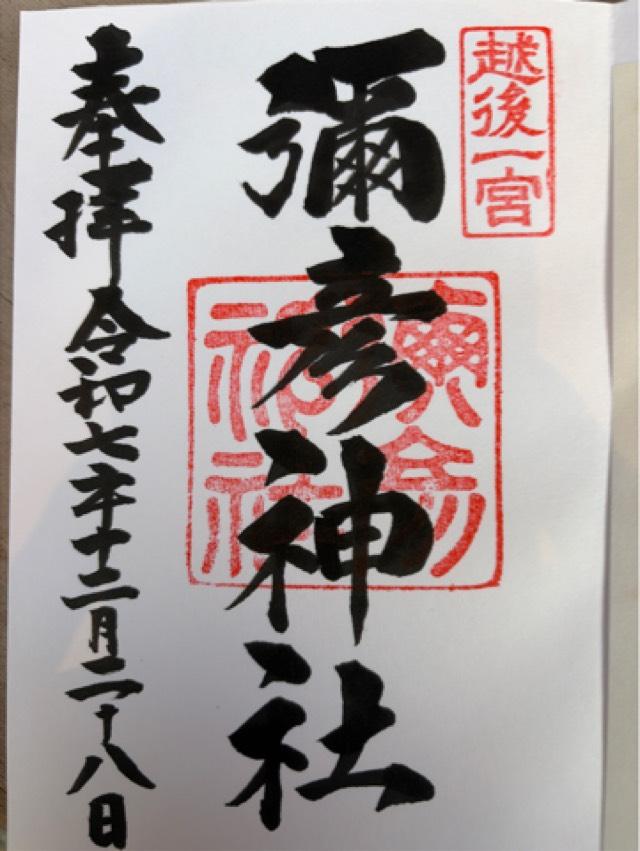 越後一宮
彌彦神社
奉拝 令和七年十二月二十八日